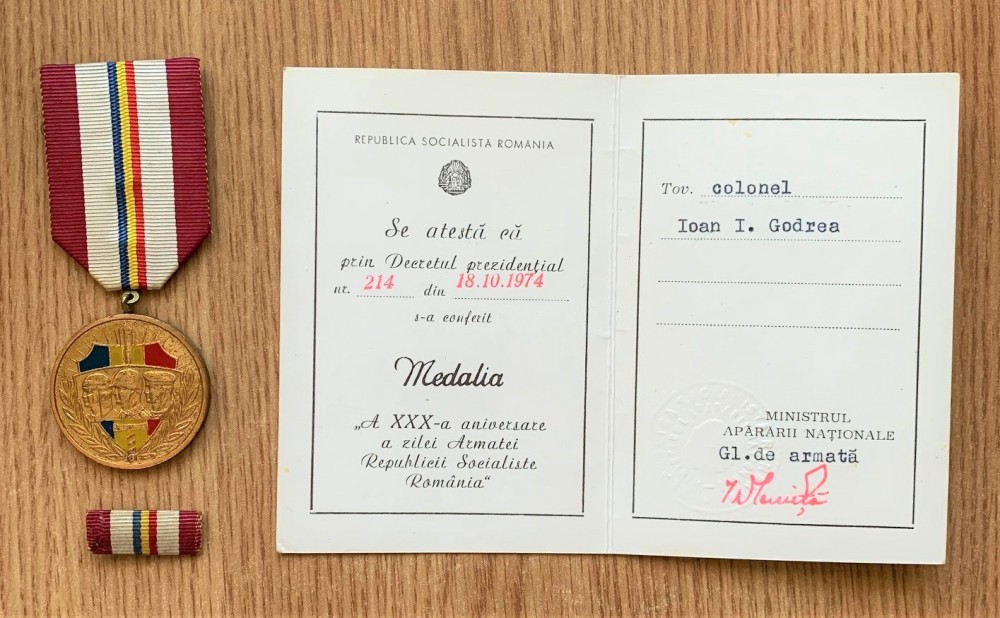 REPUBLICA SOCIALISTĂ ROMÂNIA
Se atestă că
prin Decretul prezidenţial
nr. 214 din 18.10.1974
s-a conferit
Medalia
„A XXX-a aniversare
a zilei Armatei
Republicii Socialiste
România“
Tov. colonel
Ioan I. Godrea
MINISTRUL
APĂRĂRII NAŢIONALE
Gl.de armată